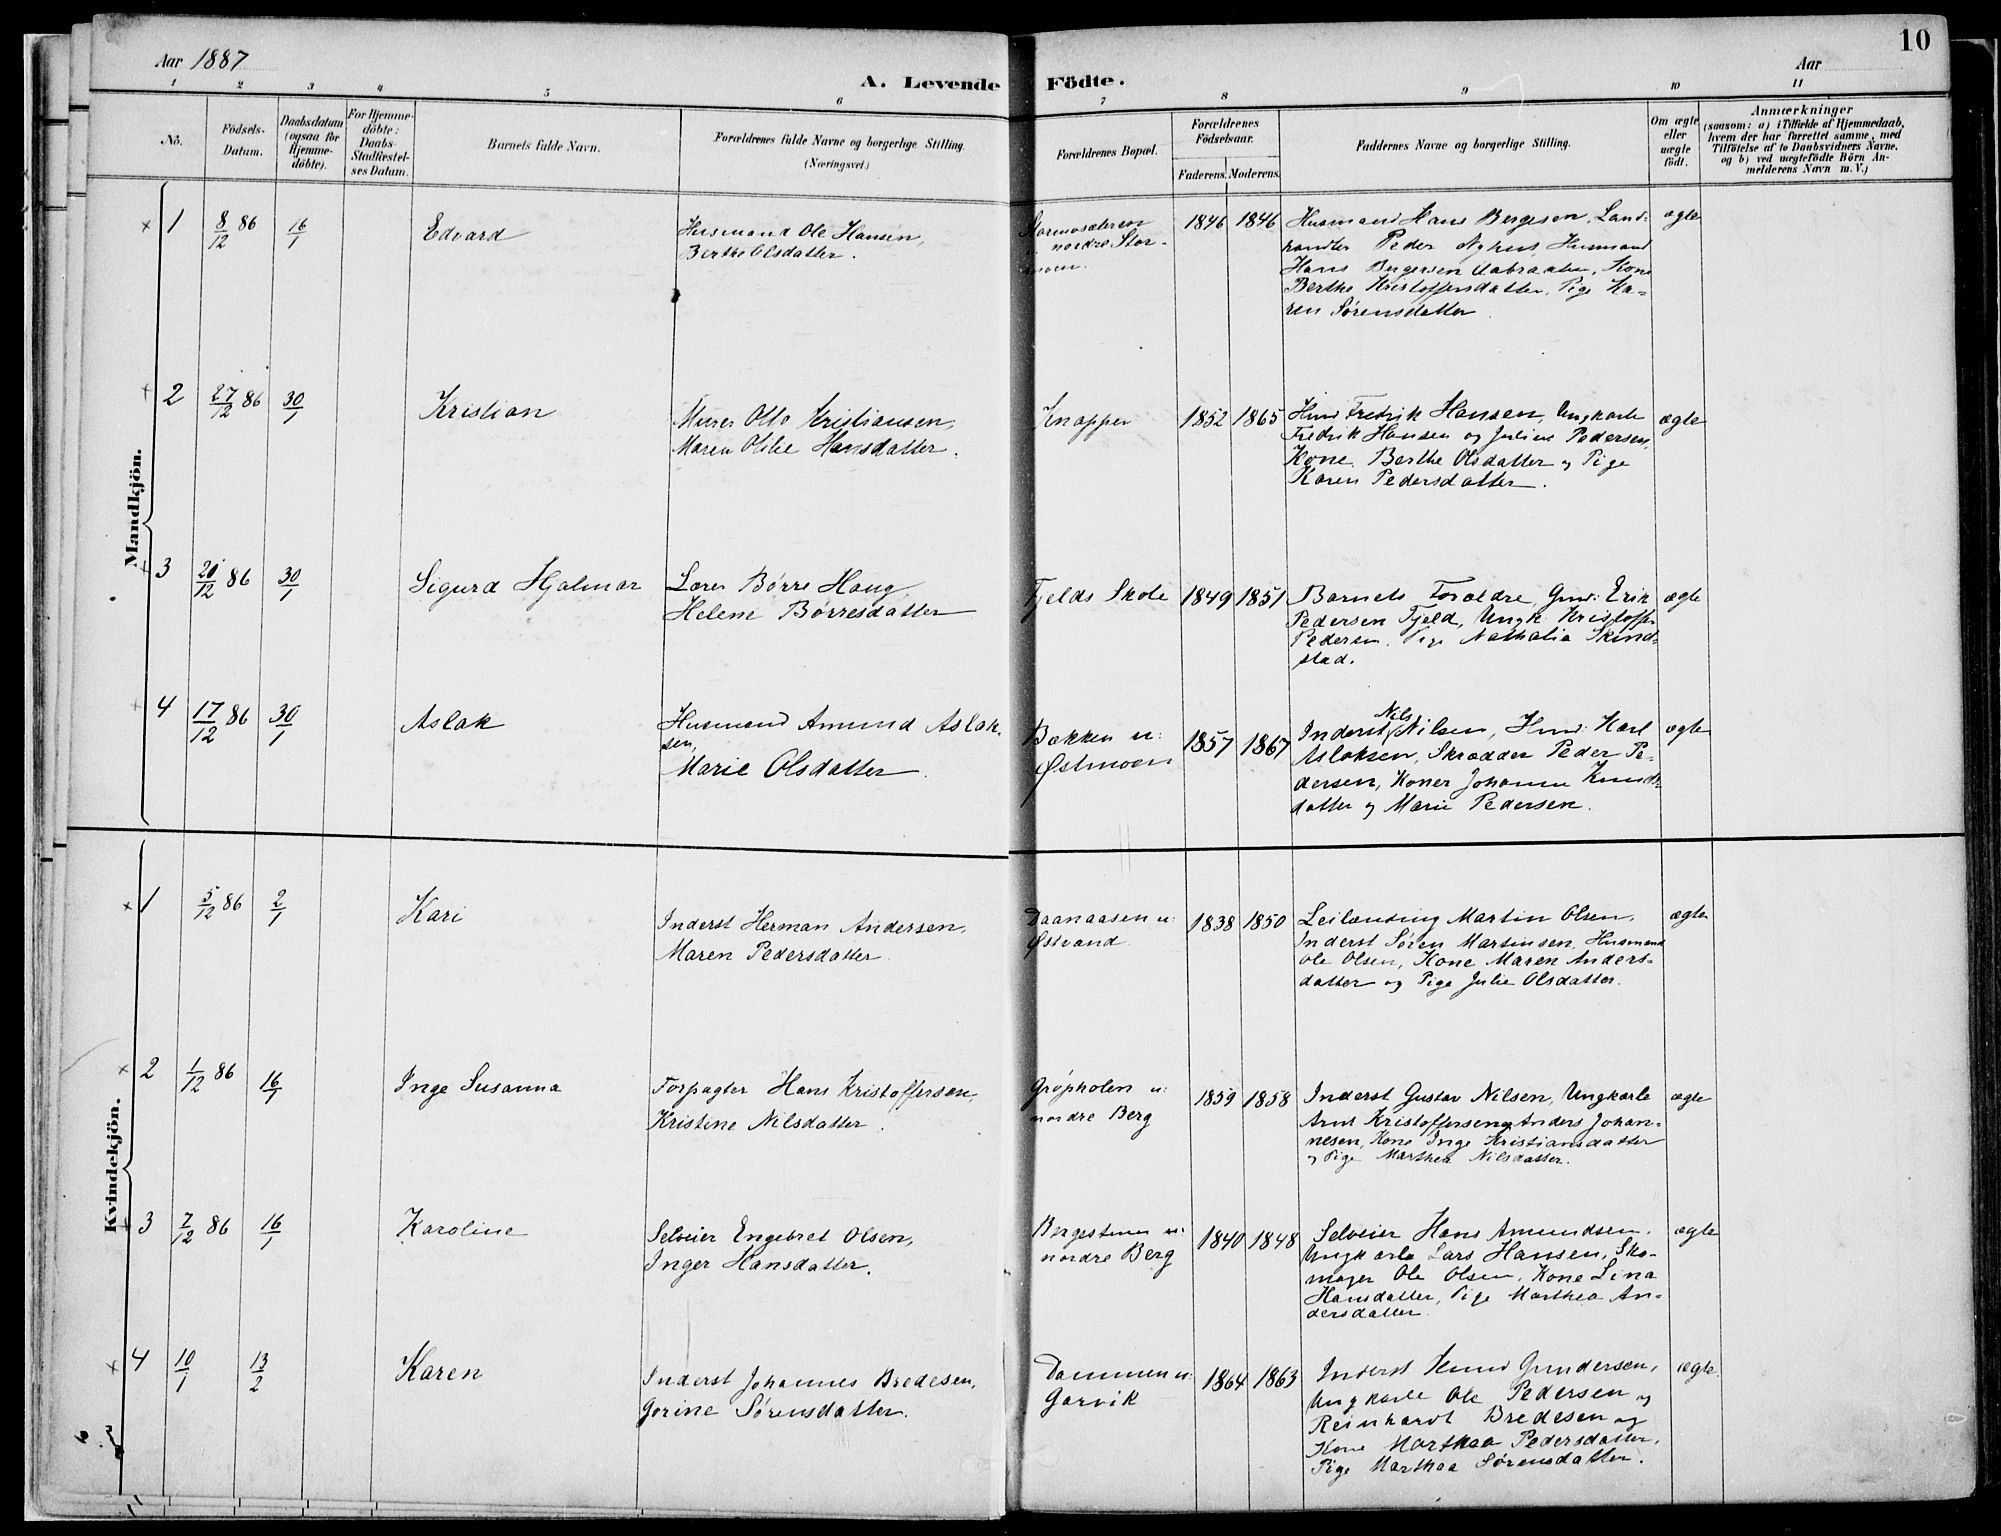 Aar 1887
10
Aar
A. Levende Födte.
1 2 3 4 5 6 7 8 9 10 11
No.
Födsels-
Datum.
Daabsdatum
(ogsaa for
Hjemme-
döbte).
For Hjemme-
döbte:
Daabs-
Stadfæstel-
ses Datum.
Barnets fulde Navn.
Forældrenes fulde Navne og borgerlige Stilling.
(Næringsvei.)
Forældrenes Bopæl.
Forældrenes
Födselsaar.
Faderens. Moderens.
Faddernes Navne og borgerlige Stilling.
Om ægte
eller
uægte
födt.
Anmærkninger
(saasom: a) i Tilfælde af Hjemmedaab,
hvem der har forrettet samme, med
Tilföielse af to Daabsvidners Navne.
og b) ved uægtefödte Börn An-
melderens Navn m. V.)
Mandkjön.
1 8/12 86 16/1 Edvard
Husmand Ole Hansen,
Berthe Olsdatter.
nordre Stor-
moen.
1846 1846
Husmand Hans Bergesen, Land-
handler Peder Nyhus, Husmand
Hans Bergersen, Kone
Berthe Kristoffersdatter, Pige Ka-
ren Sørensdatter
ægte
2 27/12 86 30/1 Kristian
Murer Otto Kristiansen,
Maren Otilie Hansdatter.
Knapper
1852 1865
Hmd Fredrik Hansen, Ungkarle
Fredrik Hansen og Julius Pedersen,
Kone Berthe Olsdatter og Pige
Karen Pedersdatter.
ægte
3 20/12 86 30/1 Sigurd Hjalmar
Lærer Børre Haug,
Helene Børresdatter
Fjelds Skole
1849 1851
Barnets Forældre, Grd: Erik
Pedersen Fjeld, Ungk Kristoffer
Pedersen, Pige Nathalia Skind-
stad.
ægte
4 17/12 86 30/1 Aslak
Husmand Amund Aslak-
sen,
Marie Olsdatter.
Bakken u:
Østmoen
1857 1867
Inderst Nils Nilsen, Hmd: Karl
Aslaksen, Skrædder Peder Pe-
dersen, Koner Johanne Knuds-
datter og Marie Pedersen.
ægte
Kvindekjön.
1 5/12 86 2/1 Kari
Inderst Herman Andersen,
Maren Pedersdatter
Daanaasen u:
Østvand
1838 1850
Leilænding Martin Olsen,
Inderst Søren Martinsen, Husmand
Ole Olsen, Kone Maren Anders-
datter og Pige Julie Olsdatter.
ægte
2 1/12 86 16/1 Inge Susanna
Forpagter Hans Kristoffersen,
Kristine Nilsdatter.
Grøpholen u:
nordre Berg
1859 1858
Inderst Gustav Nilsen, Ungkarle
Arnt Kristoffersen og Anders Johan-
nesen, Kone Inge Kristiansdatter
og Pige Marthea Nilsdatter.
ægte
3 7/12 86 16/1 Karoline
Selveier Engebret Olsen,
Inger Hansdatter.
Bergestuen u:
nordre Berg
1840 1848
Selveier Hans Amundsen,
Ungkarle Lars Hansen, Sko-
mager Ole Olsen, Kone Lina
Hansdatter, Pige Marthea An-
dersdatter.
ægte
4 10/1 13/2 Karen
Inderst Johannes Bredesen,
Gorine Sørensdatter.
Dammen u:
Garvik
1864 1863
Inderst Knud Gundersen,
Ungkarle Ole Pedersen og
Reinhardt Bredesen og
Kone Marthea Pedersdatter,
Pige Marthea Sørensdatter.
ægte